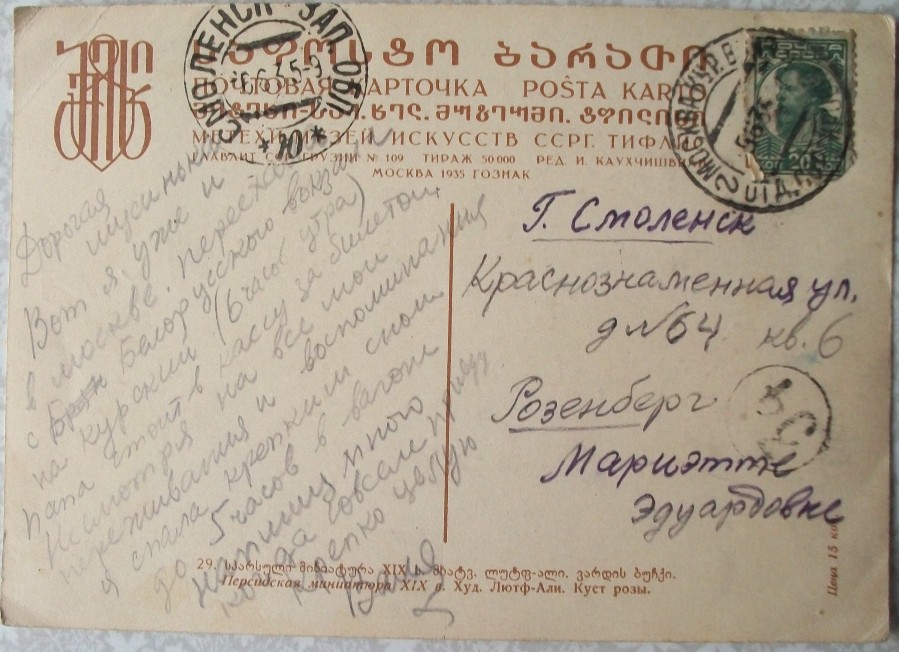 ᲡᲐᲤᲝᲡᲢᲝ ᲑᲐᲠᲐᲗᲘ
ПОЧТОВАЯ КАРТОЧКА POŜTA KARTO
МЕТЕХИ. МУЗЕЙ ИСКУССТВ ССРГ. ТИФЛИС
ГЛАВЛИТ ССР ГРУЗИИ № 109 ТИРАЖ 50000 РЕД. И. КАУХЧИШВИЛИ
МОСКВА 1935 ГОЗНАК
СМОЛЕНСК ЗАП. ОБЛ.
6.6.35-9
*10*
МОСКВА
5635
20
Дорогая
мусинька
Вот я уже и
в Москве. Переехали
с Белорусского вокзала
на Курский (6 часов утра)
папа стоит в кассу за билетом,
Несмотря на все мои
переживания и воспоминания
я спала крепким сном
до 5 часов в вагоне
напишу много
когда совсем приеду
крепко целую
Ваня
Г. Смоленск
Краснознаменная ул.
д №64 кв. 6
Розенберг
Мариэтте
Эдуардовне
29. სპარსული მინიატურა XIX ს. მხატვ. ლუტფ-ალი. ვარდის ბუჩქი.
Персидская миниатюра XIX в. Худ. Лютф-Али. Куст розы.
Цена 15 коп.